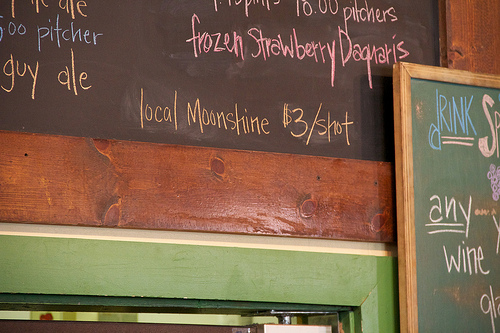 ale
pitcher
guy ale
pints pitchers
frozen Strawberry Daquaris
local Moonshine $3/shot
dRINK
any
wine